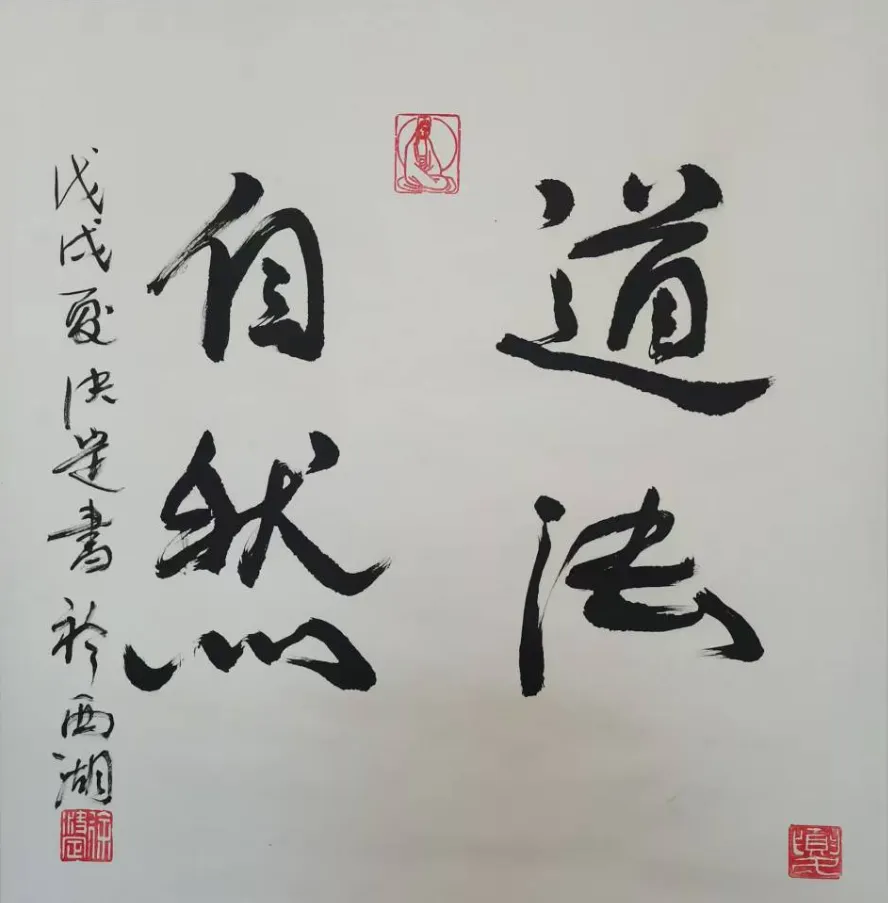 道法
自然
戊戌夏書於西湖